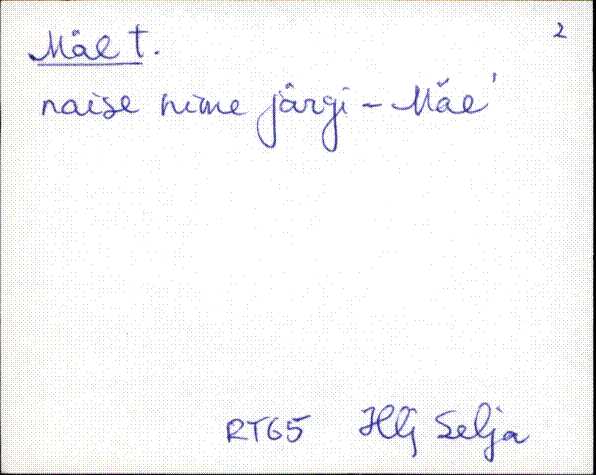 2
Mäe t.
naise nime järgi - Mäe'
RT65 Hlj Selja